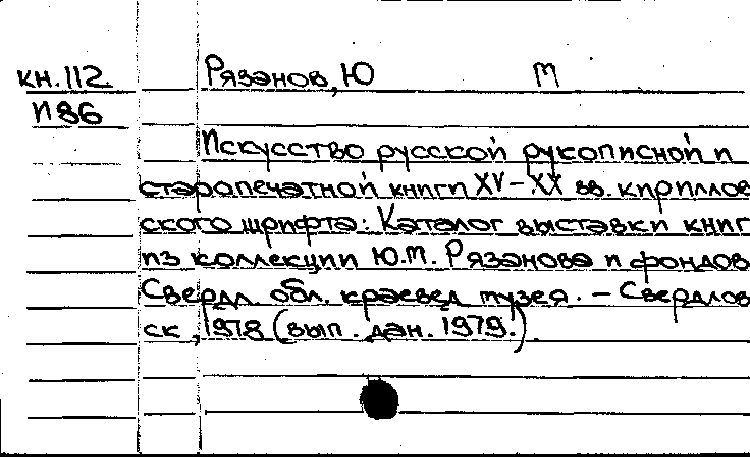 кн.112 Рязанов, Ю М
И86
Искусство русской рукописной и
старопечатной книги XV-XX вв. кириллов
ского шрифта: Каталог выставки книг
из коллекции Ю.М. Рязанова и фондов
Свердл. обл. краевед музея. - Свердлов
ск, 1978 (вып. дан. 1979.)